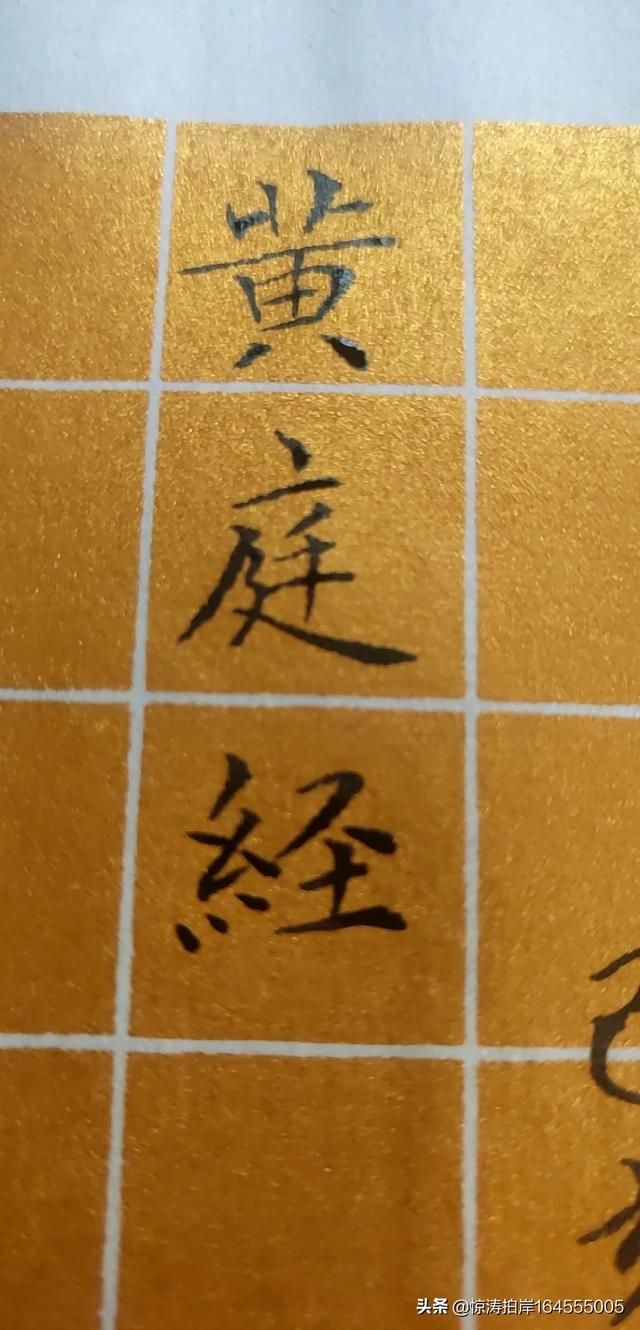 黄庭経
头条 @惊涛拍岸164555005